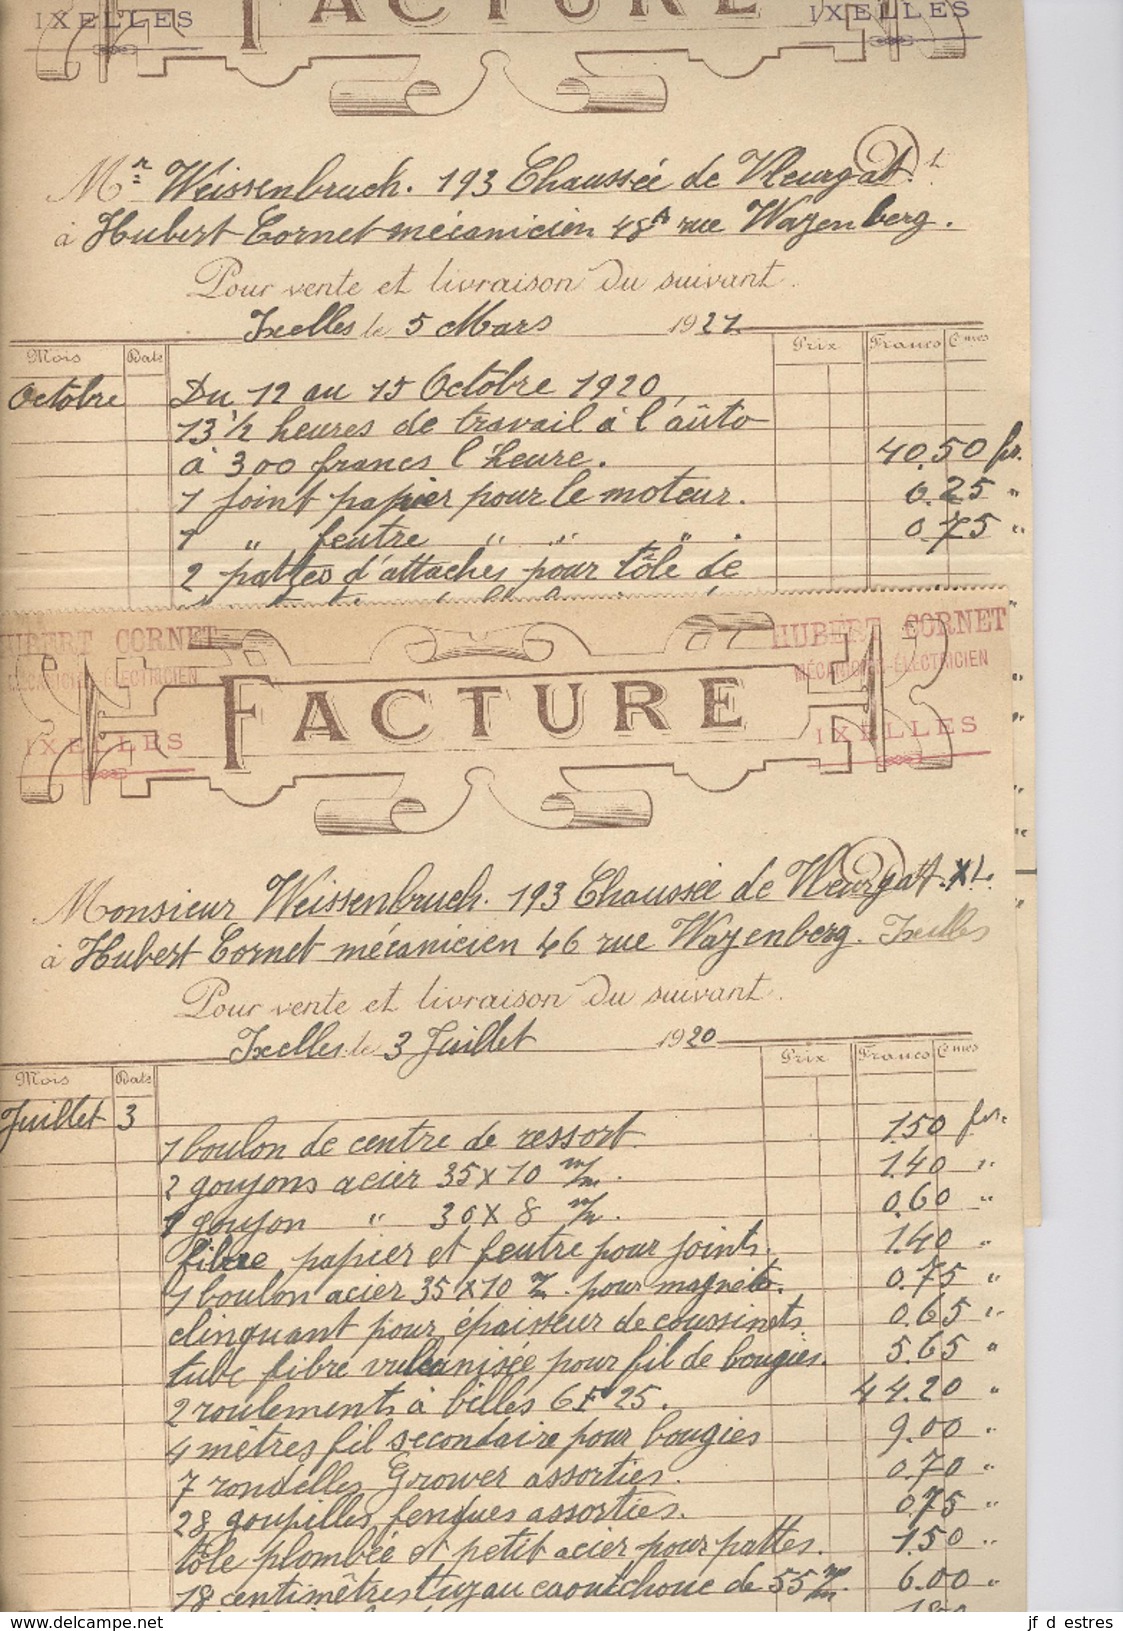 IXELLES FACTURE IXELLES
Mr Weissenbruch. 193 Chaussée de Vleurgat.
à Hubert Cornet mécanicien 48A rue Wazenberg.
Pour vente et livraison du suivant.
Ixelles le 5 Mars 1921
Mois Date Prix Francs Cmes
Octobre Du 12 au 15 Octobre 1920
13 1/2 heures de travail à l'aûto
à 300 francs l'heure. 40.50 frs.
1 joint papier pour le moteur. 0.25 "
1 " feutre " " " . 0.75 "
2 pattes d'attaches pour tôle de
HUBERT CORNET HUBERT CORNET
MÉCANICIEN-ÉLECTRICIEN MÉCANICIEN-ÉLECTRICIEN
FACTURE
IXELLES IXELLES
Monsieur Weissenbruch. 193 Chaussée de Vleurgat. XL.
à Hubert Cornet mécanicien 46 rue Wazenberg. Ixelles
Pour vente et livraison du suivant.
Ixelles le 3 Juillet 1920
Mois Date Prix Francs Cmes
Juillet 3
1 boulon de centre de ressort 1.50 frs.
2 goujons acier 35x10 m/m. 1.40 "
1 goujon " 30x8 m/m. 0.60 "
fibre papier et feutre pour joints. 1.40 "
1 boulon acier 35x10 m/m. pour magnéto. 0.75 "
clinquant pour épaisseur de coussinets 0.65 "
tube fibre vulcanisée pour fil de bougies. 5.65 "
2 roulements à billes 6F25. 44.20 "
4 mètres fil secondaire pour bougies 9.00 "
7 rondelles Grower assorties. 0.70 "
28 goupilles fendues assorties. 0.75 "
tôle plombée et petit acier pour pattes. 1.50 "
18 centimètres tuyau caoutchouc de 55 m/m. 6.00 "
delcampe.net
jf d estres